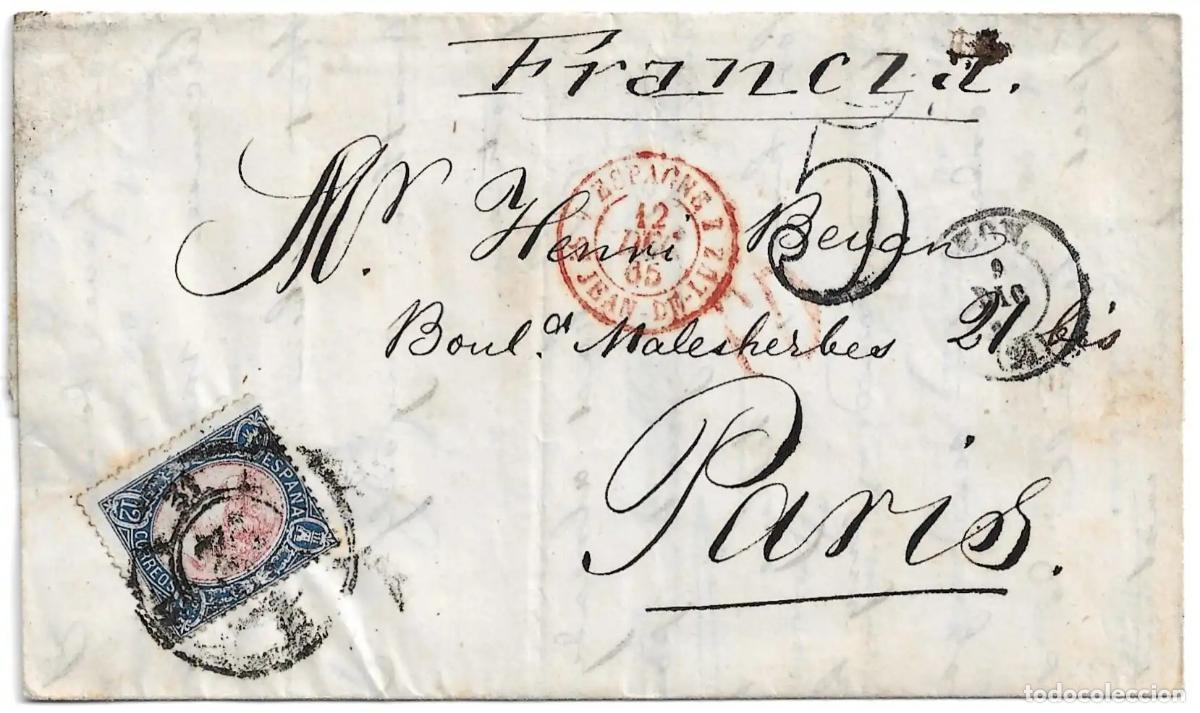 Francia.
Mr Henri Bevan
Boul.d Malesherbes 27 bis
Paris.
5
ESPAGNE
12
DEC.
65
ST JEAN-DE-LUZ
9
DIC
ESPAÑA
CORREOS
12
todocoleccion